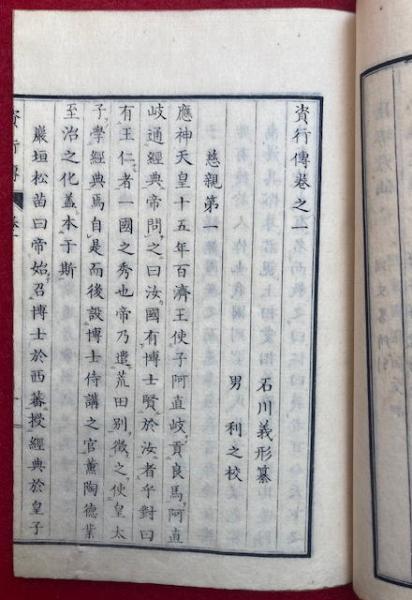 資行傳卷之一
石川義形纂
男利之校
慈親第一
應神天皇十五年百濟王使子阿直岐貢良馬阿直
岐通經典帝問之曰汝國有博士賢於汝者乎對曰
有王仁者一國之秀也帝乃遣荒田別徵之使皇太
子學經典焉自是而後設博士侍講之官薰陶德業
至治之化蓋本于斯
巖垣松苗曰帝始召博士於西蕃授經典於皇子
資行傳
卷一